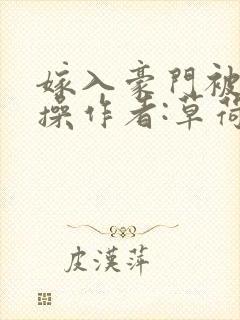 嫁入豪門被
操作者:草荷
皮漢萍